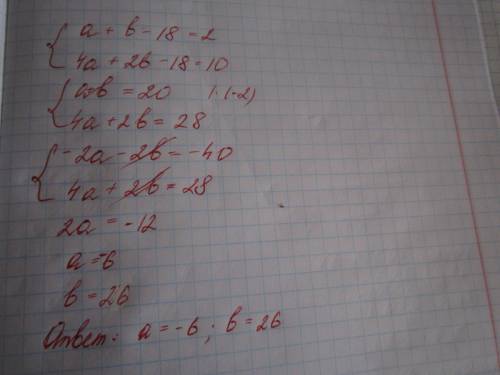 a + b - 18 = 2
4a + 2b - 18 = 10
a+b = 20 | · (-2)
4a + 2b = 28
-2a - 2b = -40
4a + 2b = 28
2a = -12
a = -6
b = 26
Ответ: a = -6 ; b = 26